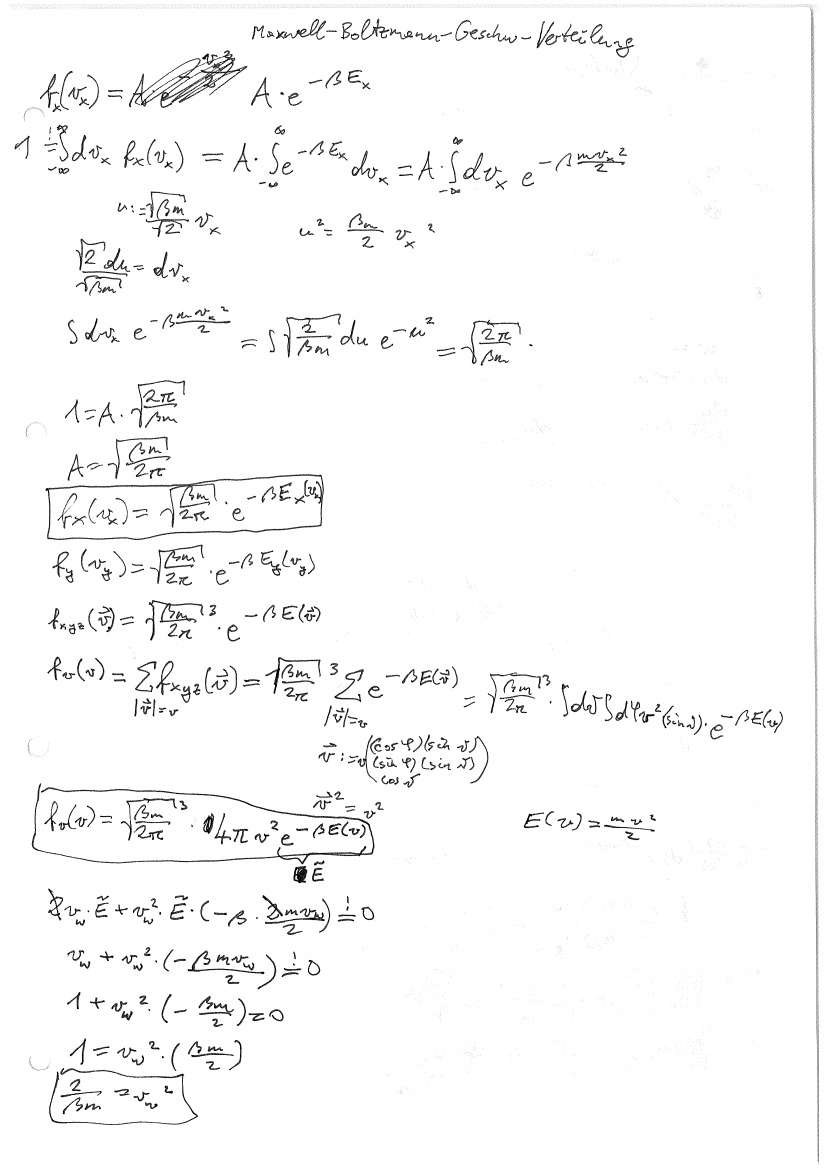 Maxwell-Boltzmann-Geschw-Verteilung
f_x(v_x) = A · e^{-βE_x}
1 =! ∫_{-∞}^{∞} dv_x f_x(v_x) = A · ∫_{-∞}^{∞} e^{-βE_x} dv_x = A · ∫_{-∞}^{∞} dv_x e^{-β mv_x²/2}
u := √(βm)/√2 v_x    u² = βm/2 v_x²
√2 du/√(βm) = dv_x
∫ dv_x e^{-β m v_x²/2} = ∫ √(2/βm) du e^{-u²} = √(2π/βm) .
1 = A · √(2π/βm)
A = √(βm/2π)
f_x(v_x) = √(βm/2π) · e^{-βE_x(v_x)}
f_y(v_y) = √(βm/2π) · e^{-βE_y(v_y)}
f_xyz(v⃗) = √(βm/2π)³ · e^{-βE(v⃗)}
f_v(v) = Σ_{|v⃗|=v} f_xyz(v⃗) = √(βm/2π)³ Σ_{|v⃗|=v} e^{-βE(v⃗)} = √(βm/2π)³ · ∫dϑ ∫dφ v² (sin ϑ) · e^{-βE(v)}
v⃗ := v ((cos φ)(sin ϑ)
(sin φ)(sin ϑ)
cos ϑ)
v⃗² = v²
f_v(v) = √(βm/2π)³ · 4π v² e^{-βE(v)}    E(v) = mv²/2
Ẽ
2v_w · Ẽ + v_w² · Ẽ · (-β · 2mv_w/2) =! 0
v_w + v_w² · (-βmv_w/2) =! 0
1 + v_w² · (-βm/2) = 0
1 = v_w² · (βm/2)
2/βm = v_w²